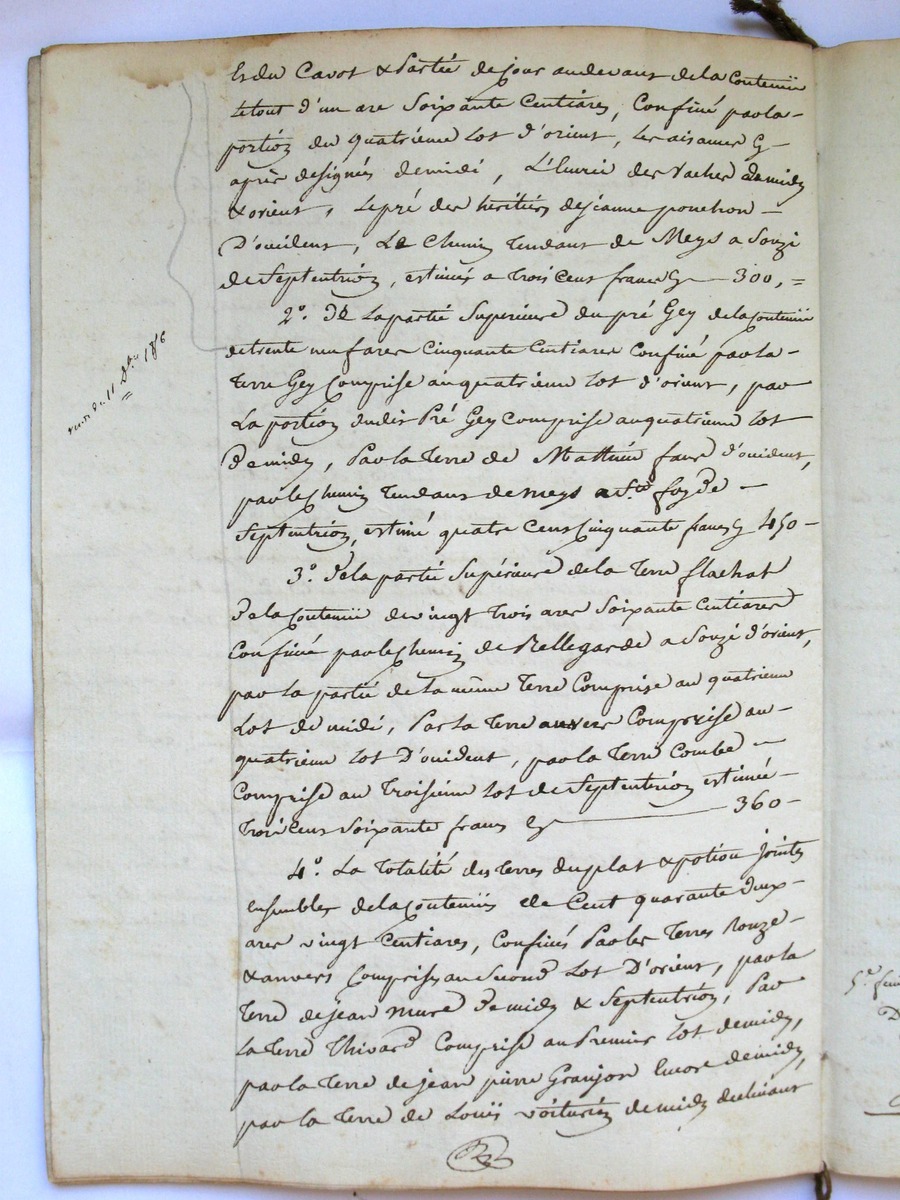 Et du Cavot & Partie de jour au devant de la Contenüe
le tout d'un are Soixante Centiares, Confiné par la
portion du quatrieme Lot d'orient, les aisances Cy
après designés de midi, L'Ecurie des Vaches de midy
& orient, le pré des héritiers de jeanne ponchon
D'occident, Le Chemin Tendant de Meys a Souzi
de Septentrion, estimés a trois Cent francs Cy 300,=
2°. De La partie Superieure du pré Gey de la Contenüe
de trente neuf ares Cinquante Centiares Confiné par la
terre Gey Comprise au quatrieme Lot d'orient, par
La portion dudit Pré Gey Comprise au quatrieme Lot
de midy, Par la Terre de Mathieu faure d'occident,
par le Chemin Tendant de meys a Ste. foy de
Septentrion, estimé quatre Cent Cinquante francs Cy 450
3°. De la partie Supérieure de la Terre flachat
de la Contenüe de vingt Trois ares Soixante Centiares
Confiné par le Chemin de Bellegarde a Souzi d'orient,
par la partie de la même Terre Comprise au quatrieme
Lot de midi, Par la Terre anvers Comprise au
quatrieme Lot D'occident, par la Terre Combe
Comprise au Troisieme Lot de Septentrion estimée
Trois Cent Soixante francs Cy 360
4°. La Totalité des Terres du plat & potion jointes
Ensembles de la Contenüe de Cent quarante deux
ares vingt Centiares, Confinés Par les Terres Rouze
& anvers Comprises au Second Lot D'orient, par la
Terre de jean mure de midy & Septentrion, Par
La Terre Thivard Comprise au Premier Lot de midy,
par la Terre de jean pierre Granjon Encore de midy,
par la Terre de Louis voiturier de midy declinant
11 Xbre 1816